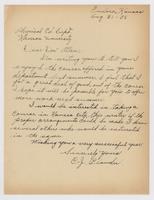 Emporia, Kansas
Aug. 21 - 35
Physical Ed. Dept.
Kansas University
Dear Dr. Allen:
I'm writing you to tell you I
enjoyed the courses offered in your
department last summer & feel that I
got a great deal of good out of the course
I hope it will be possible for you to offer
more work next summer.
I would be interested in taking a
course in Kansas City this winter if the
proper arrangements could be made. I know
several others who would be interested
in the same.
Wishing you a very successful year
Sincerely yours
E. J.